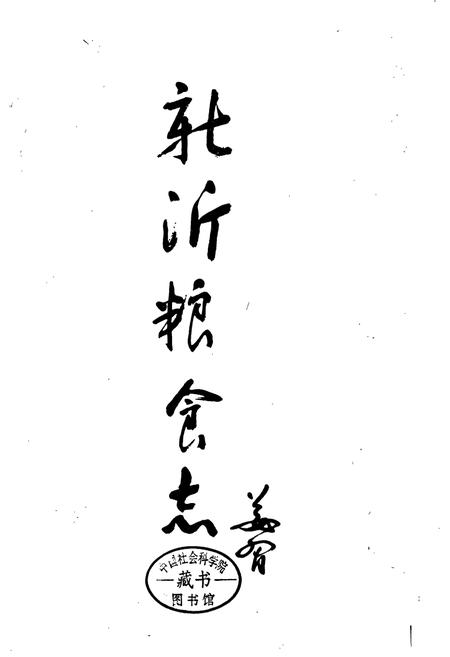 新沂粮食志
中国社会科学院
藏书
图书馆